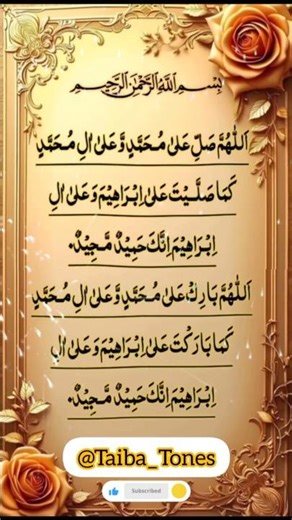 بِسْمِ اللهِ الرَّحْمٰنِ الرَّحِيْمِ
اَللّٰهُمَّ صَلِّ عَلٰى مُحَمَّدٍ وَّعَلٰى اٰلِ مُحَمَّدٍ
كَمَا صَلَّيْتَ عَلٰى اِبْرَاهِيْمَ وَعَلٰى اٰلِ
اِبْرَاهِيْمَ اِنَّكَ حَمِيْدٌ مَّجِيْدٌ۔
اَللّٰهُمَّ بَارِكْ عَلٰى مُحَمَّدٍ وَّعَلٰى اٰلِ مُحَمَّدٍ
كَمَا بَارَكْتَ عَلٰى اِبْرَاهِيْمَ وَعَلٰى اٰلِ
اِبْرَاهِيْمَ اِنَّكَ حَمِيْدٌ مَّجِيْدٌ۔
@Taiba_Tones
Subscribed